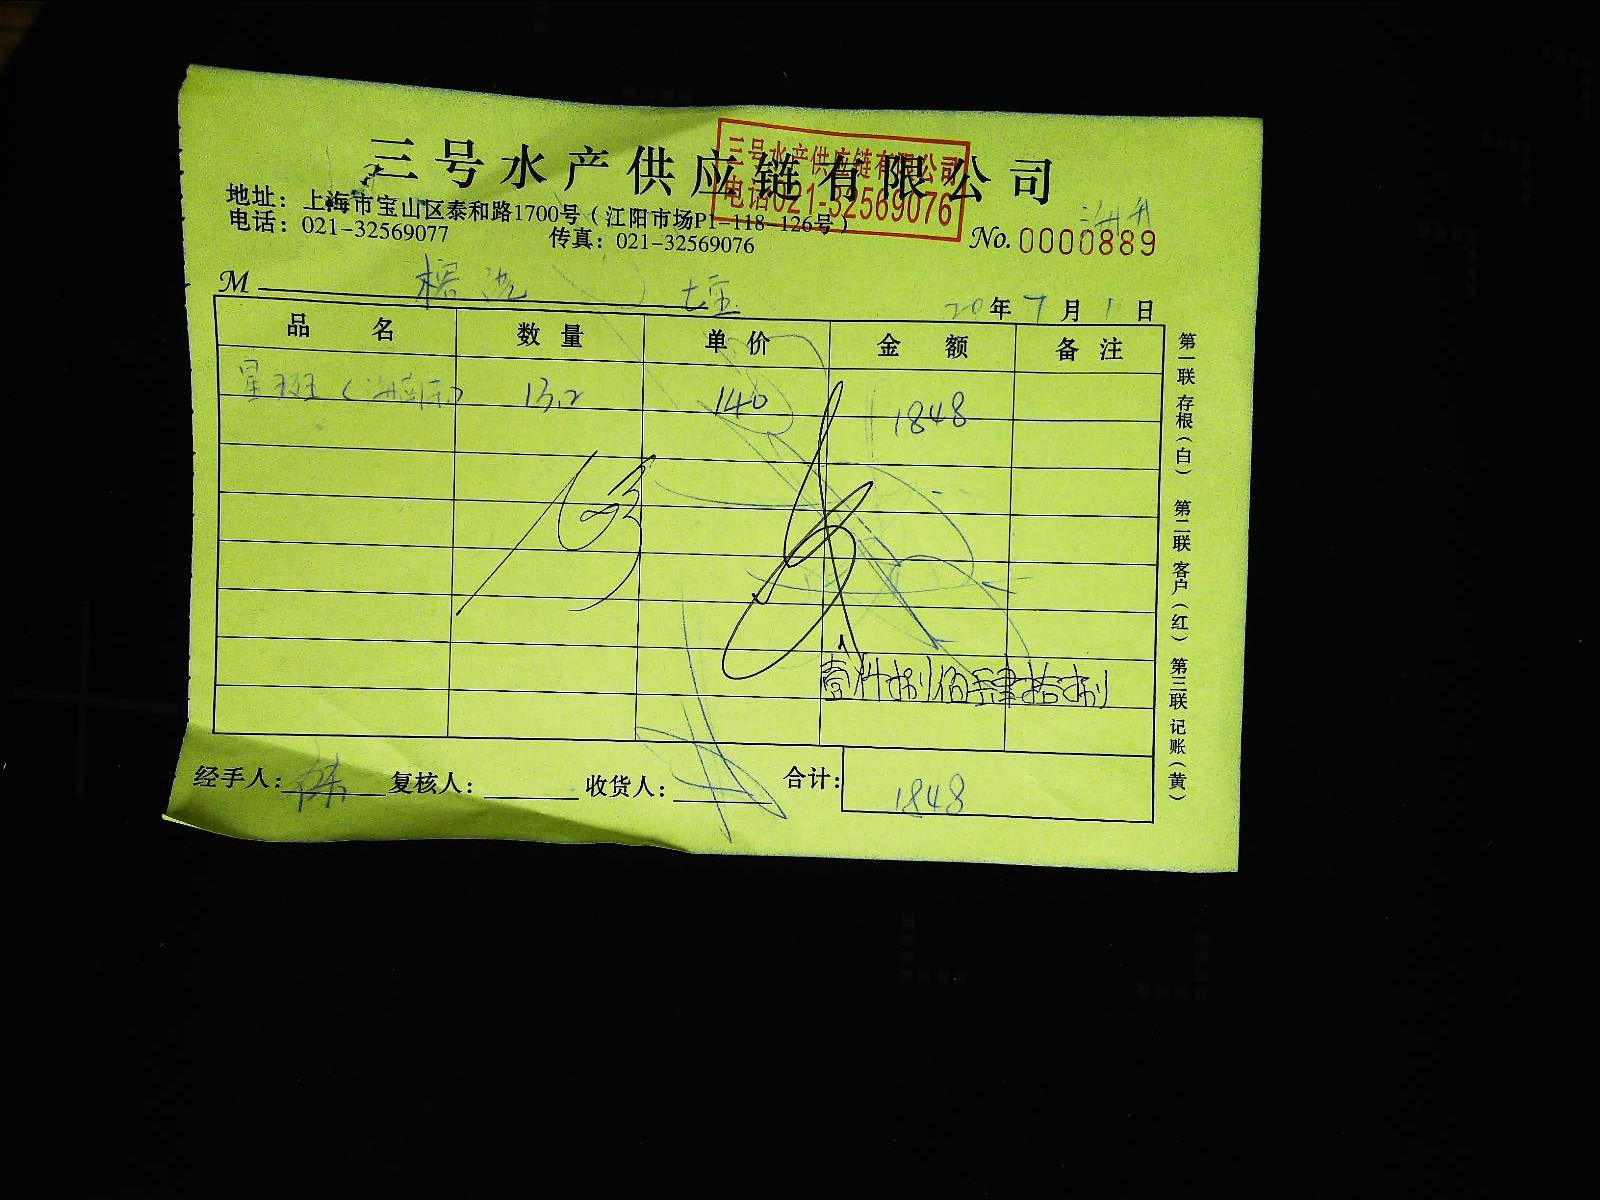 三号水产供应链有限公司
三号水产供应链有限公司
电话021-32569076
地址：上海市宝山区泰和路1700号（江阳市场P1-118-126号）
电话：021-32569077 传真：021-32569076
No. 0000889
M
20年7月1日
品名 数量 单价 金额 备注
星斑（海南 13.2 140 1848
壹仟捌佰肆拾捌
经手人： 复核人： 收货人： 合计： 1848
第一联 存根（白） 第二联 客户（红） 第三联 记账（黄）